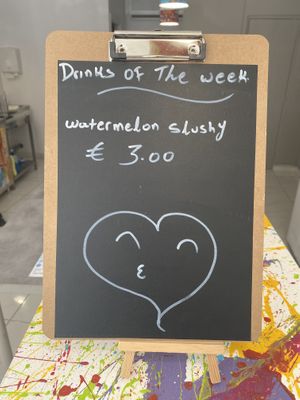 Drinks Of The week
watermelon slushy
€ 3.00